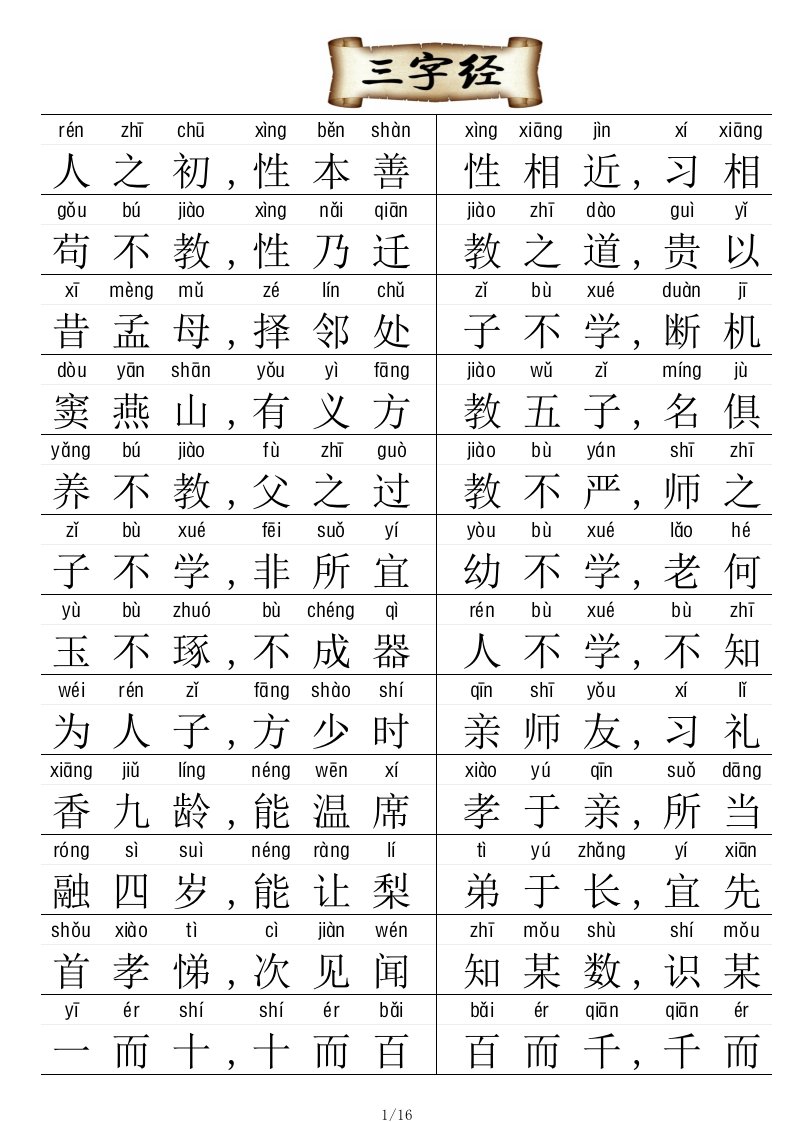 三字经
rén zhī chū xìng běn shàn xìng xiāng jìn xí xiāng
人之初,性本善 性相近,习相
gǒu bú jiào xìng nǎi qiān jiào zhī dào guì yǐ
苟不教,性乃迁 教之道,贵以
xī mèng mǔ zé lín chǔ zǐ bù xué duàn jī
昔孟母,择邻处 子不学,断机
dòu yān shān yǒu yì fāng jiào wǔ zǐ míng jù
窦燕山,有义方 教五子,名俱
yǎng bú jiào fù zhī guò jiào bù yán shī zhī
养不教,父之过 教不严,师之
zǐ bù xué fēi suǒ yí yòu bù xué lǎo hé
子不学,非所宜 幼不学,老何
yù bù zhuó bù chéng qì rén bù xué bù zhī
玉不琢,不成器 人不学,不知
wéi rén zǐ fāng shào shí qīn shī yǒu xí lǐ
为人子,方少时 亲师友,习礼
xiāng jiǔ líng néng wēn xí xiào yú qīn suǒ dāng
香九龄,能温席 孝于亲,所当
róng sì suì néng ràng lí tì yú zhǎng yí xiān
融四岁,能让梨 弟于长,宜先
shǒu xiào tì cì jiàn wén zhī mǒu shù shí mǒu
首孝悌,次见闻 知某数,识某
yī ér shí shí ér bǎi bǎi ér qiān qiān ér
一而十,十而百 百而千,千而
1/16